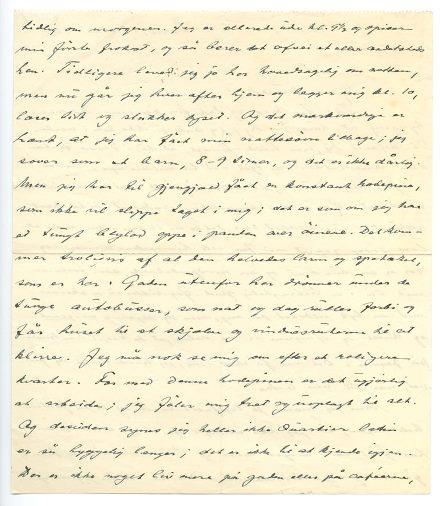 tidlig om morgenen. Jeg er allerede ude kl. 9½ og spiser
min förste frokost, og så bærer det afsted et eller andetsteds
hen. Tidligere leved jeg jo her hovedsagelig om natten,
men nu går jeg hver aften hjem og lægger mig kl. 10,
læser lidt og slukker lyset. Og det mærkværdige er
hændt, at jeg har fået min nattesövn tilbage; jeg
sover som et barn, 8-9 timer, og det er ikke dårlig.
Men jeg har til gjengjæld fået en konstant hodepine,
som ikke vil slippe taget i mig; det er som om jeg har
et tungt blylod oppe i panden over öinene. Det kom-
mer troligvis af al den helvedes larm og spektakel,
som er her. Gaden udenfor her drönner under de
tunge autobusser, som nat og dag ruller forbi og
får huset til at skjælve og vinduesruterne til at
klirre. Jeg må nok se mig om efter et roligere
kvarter. For med denne hodepinen er det ugjörlig
at arbeide; jeg föler mig træt og uoplagt til alt.
Og desuden synes jeg heller ikke Quartier Latin
er så hyggelig længer; det er ikke til at kjende igjen.
Der er ikke noget liv mere på gaden eller på caféerne,